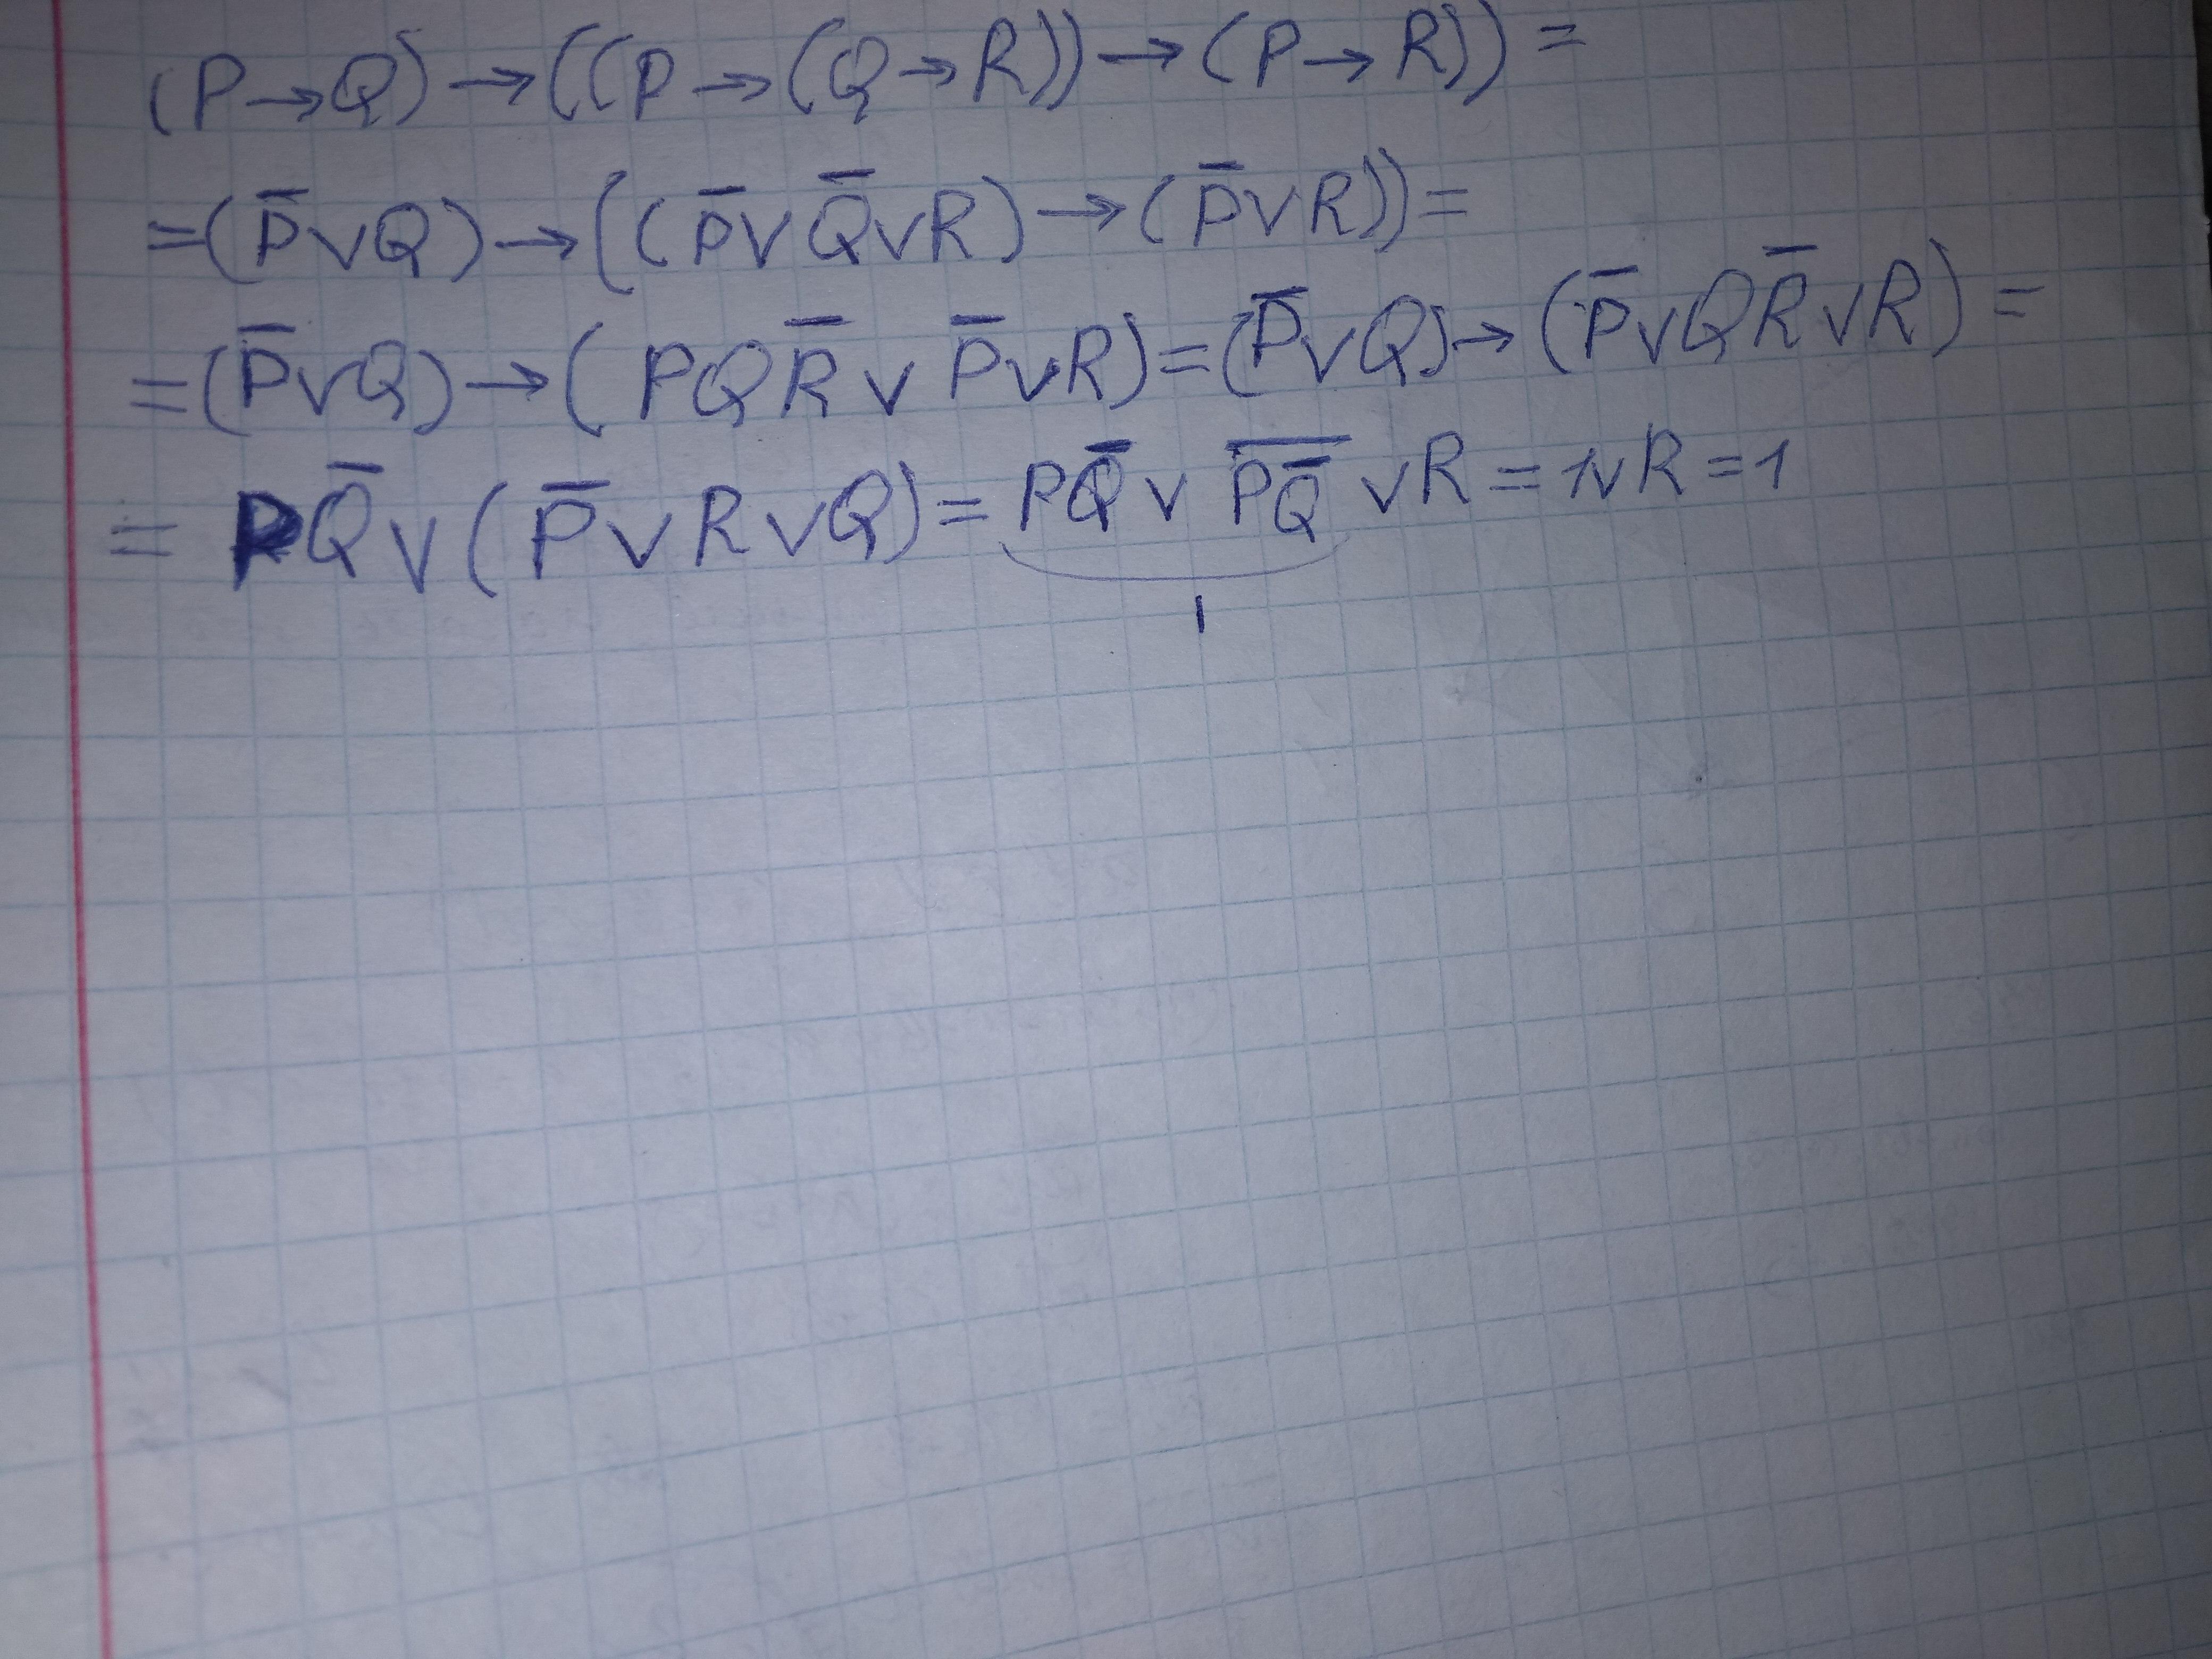 (P→Q)→((P→(Q→R))→(P→R))=
=(P̅∨Q)→((P̅∨Q̅∨R)→(P̅∨R))=
=(P̅∨Q)→(PQR̅∨P̅∨R)=(P̅∨Q)→(P̅∨QR̅∨R)=
=PQ̅∨(P̅∨R∨Q)=PQ̅∨\overline{PQ̅}∨R=1∨R=1
1